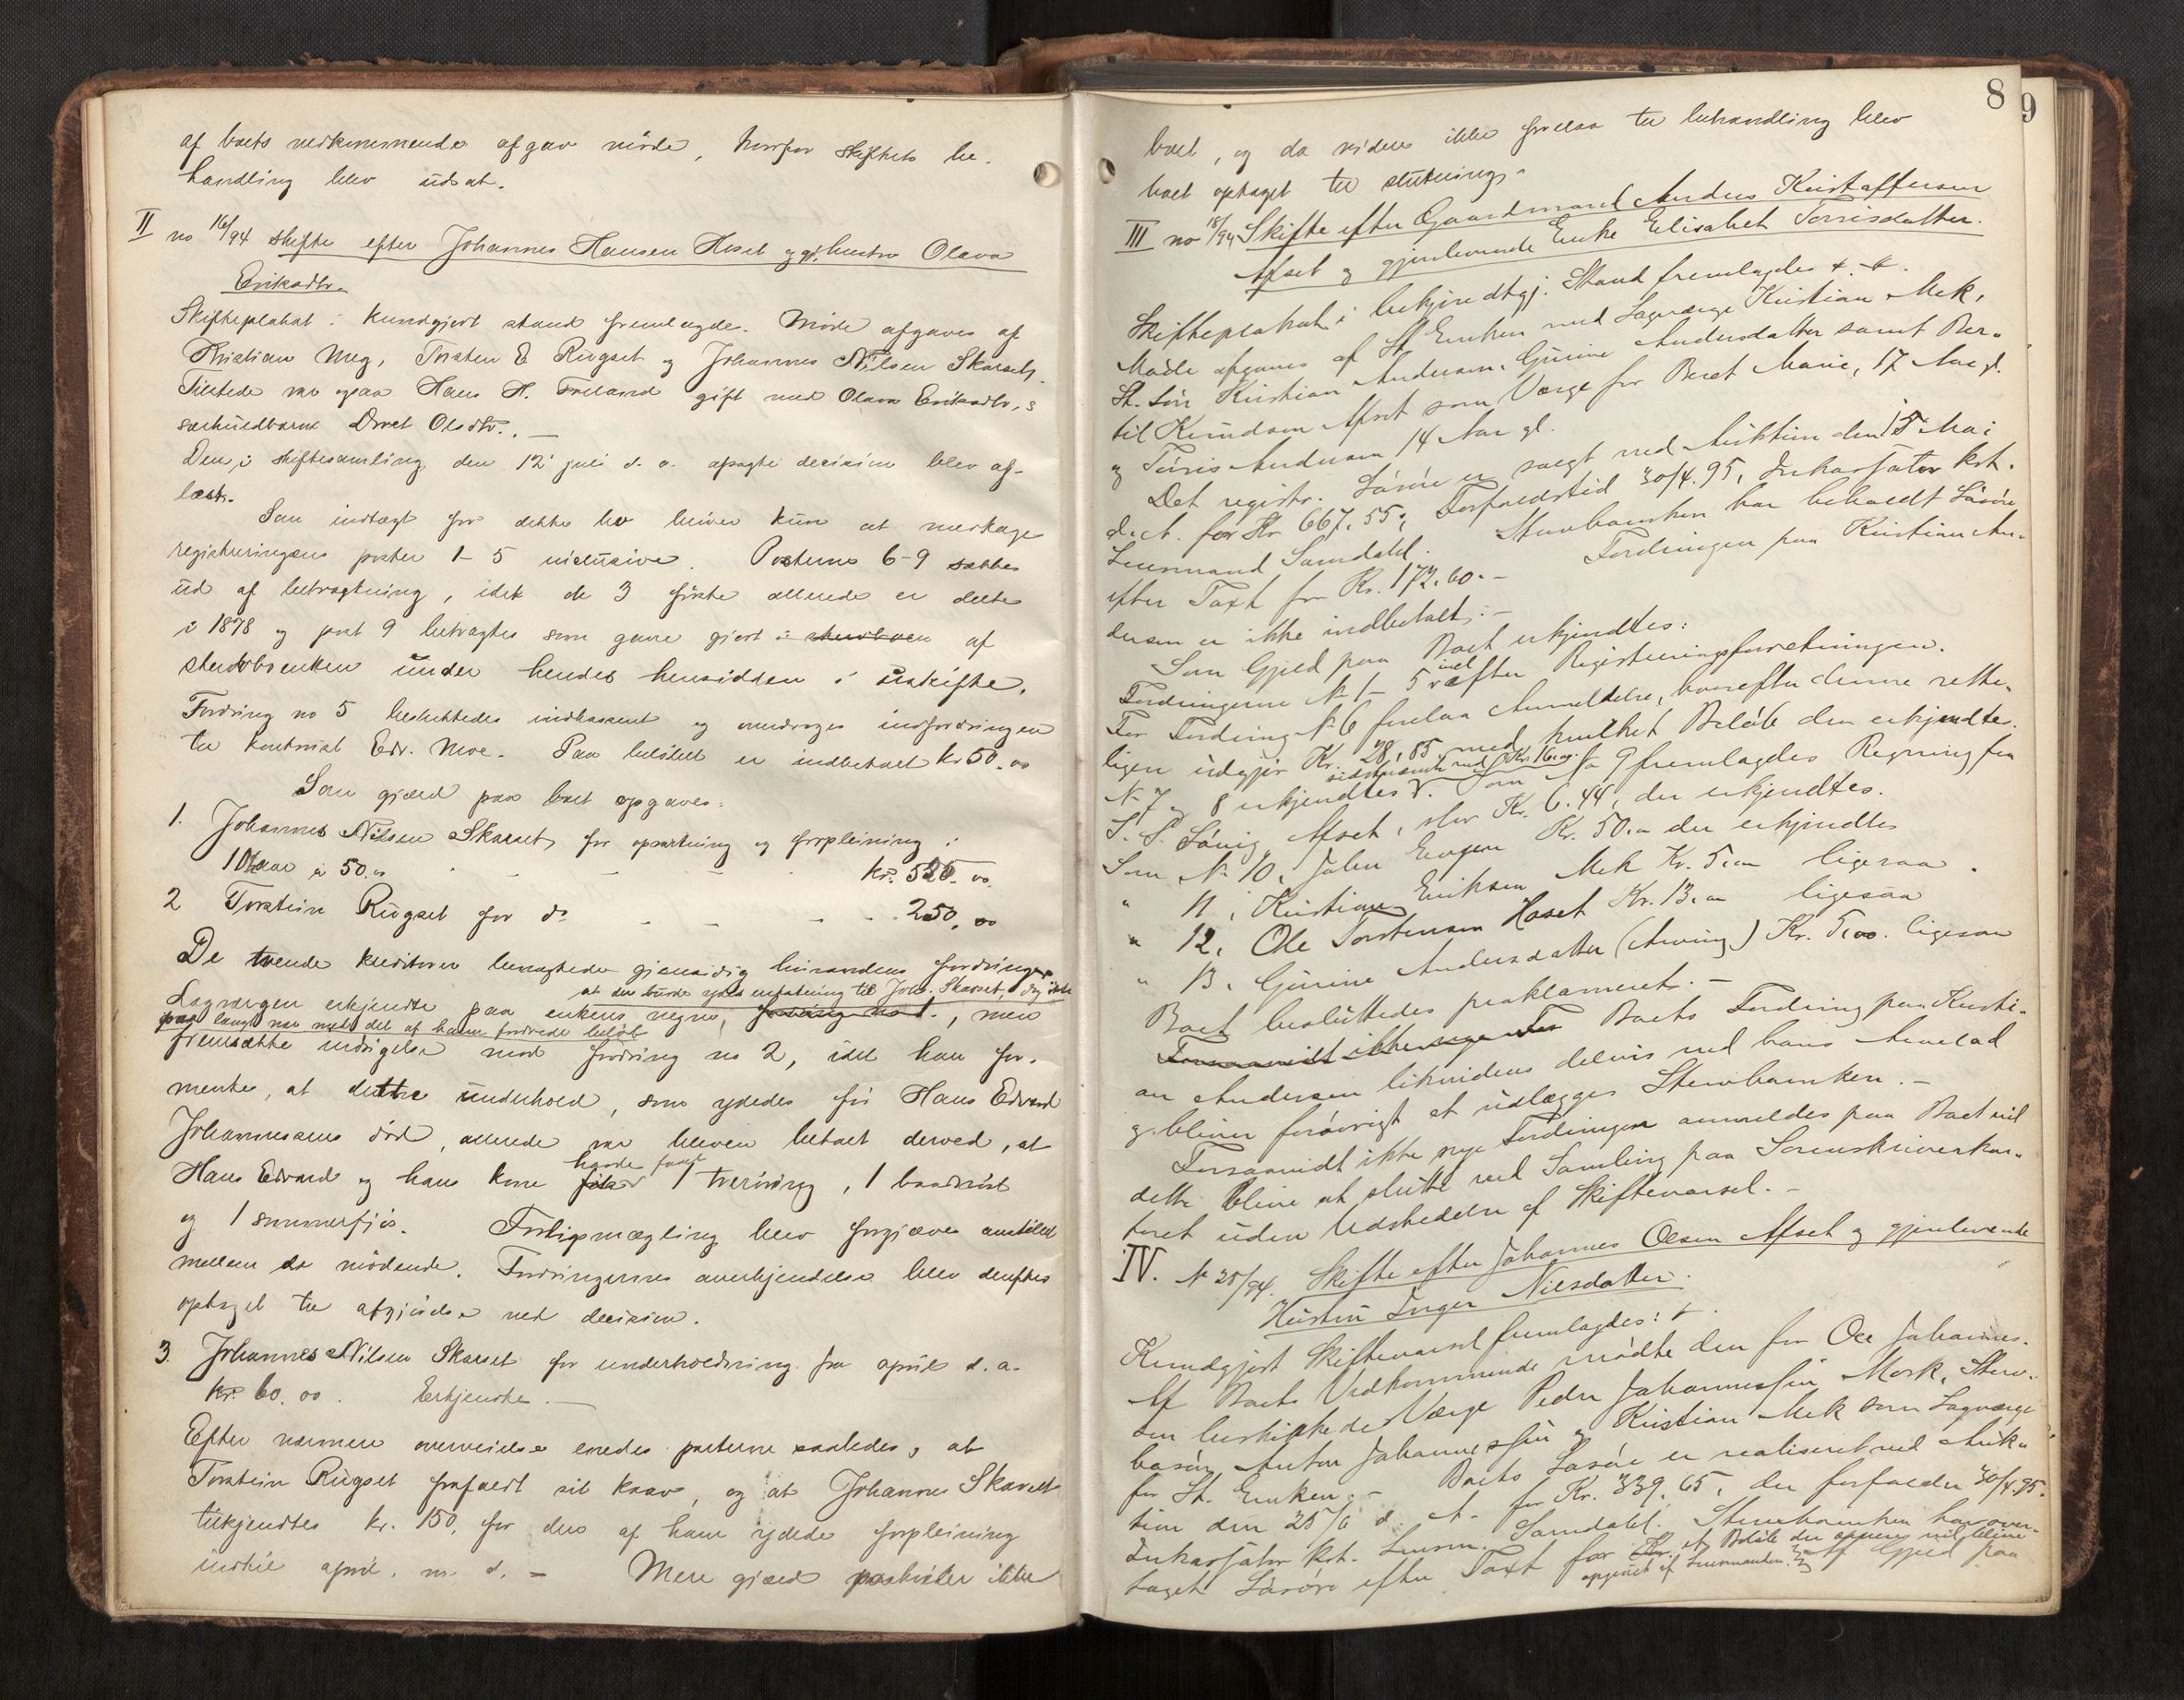 af boets vedkommende afgav møde, hvorfor skiftets be-
handling blev udsat.
II no 16/94 skifte efter Johannes Hansen Heset og gjl. hustru Olava
Eriksdtr.
Skifteplakat i kundgjort stand fremlagdes. Møde afgaves af
Kristian Meg, Torsten E Rugset og Johannes Nilsen Skarset.
Tilstede var ogsaa Hans H. gift med Olava Eriksdtr,s
særkuldbarn Olsdtr. —
Den i skiftesamling den 12 juli d. a. afsagte decision blev af-
læst.
Som indtægt for dette bo bliver kun at medtage
registreringens poster 1-5 inclusive. Posterne 6-9 sættes
ud af betragtning, idet de 3 første allerede er delte
i 1878 og post 9 betragtes som gave gjort i sterbboen af
sterbboenken under hendes hensidden i uskifte.
Fordring no 5 besluttedes indkasseret og overdroges indfordringen
til kontorist Edv. Moe. Paa beløbet er indbetalt kr 50.00
Som gjæld paa boet opgaves:
1. Johannes Nilsen Skarset for opvartning og forpleining i
10½ aar à 50.00 - - - kr. 525.00
2 Torstein Rugset for do - - - 250,00
De tvende kreditorer benægtede gjensidig hinandens fordringer.
at der burde ydes erstatning til Johs. Skarset, dog ikke
Lagværgen erkjendte paa enkens vegne, fordring no 1., men
paa langt nær med det af ham fordrede beløb
fremsatte indsigelse mod fordring no 2, idet han for-
mente, at dette underhold, som ydedes før Hans Edvard
Johannesens død, allerede var bleven betalt derved, at
Hans Edvard og hans kone havde faaet 1 , 1 baadnøst
og 1 sommerfjøs. Forligsmægling blev forgjæves anstillet
mellem de mødende. Fordringernes anerkjendelse blev derefter
optaget til afgjørelse ved decision.
3. Johannes Nilsen Skarset for underholdning fra april d. a.
kr. 60.00. Erkjendtes. —
Efter nærmere overveielse enedes parterne saaledes, at
Torstein Rugset frafaldt sit krav, og at Johannes Skarset
tilkjendtes kr. 150, for den af ham ydede forpleining
indtil april. m. d. - Mere gjæld paahviler ikke
8 9
boet, og da videre ikke forelaa til behandling blev
boet optaget til slutning.
III no 18/94 Skifte efter Gaardmand Anders Kristoffersen
Afset og gjenlevende Enke Elisabet Torrisdatter.
Skifteplakat i bekjendtgj. Stand fremlagdes +.
Møde afgaves af St. Enken med Lagværge Kristian Mek,
St. Søn Kristian Andersen, Gurine Andersdatter samt Ber-
til Knudsen Afset som Værge for Beret Marie, 17 Aar gl.
og Turis Andersen 14 Aar gl.
Det registr. Løsøre er solgt ved Auktion den 15 Mai
d. A. for Kr 667.55, Forfaldstid 30/4.95, Inkassator kst.
Lensmand Samdahl. Stervboenken har beholdt Løsøre
efter Taxt for Kr. 172.60.- Fordringen paa Kristian An-
dersen er ikke indbetalt. -
Som Gjæld paa Boet erkjendtes:
Fordringerne № 1 - 5 incl efter Registreringsforretningen.
For Fordring № 6 forelaa Anmeldelse, hvorefter denne rette-
ligen udgjør Kr. 28,85 med hvilket Beløb den erkjendtes.
sidstnævnte med Kr. 16.00
№ 7 og 8 erkjendtes v. Som № 9 fremlagdes Regning fra
S. S. Løvig Afset, stor Kr. 6.44, der erkjendtes.
Som № 10, John Kr. 50.00 der erkjendtes
" 11, Kristian Eriksen Mek Kr. 5.00 ligesaa.
" 12, Ole Torstensen Haset Kr. 13.00 ligesaa
" 13. Gurine Andersdatter (Arving) Kr. 5,00. ligesaa
Boet besluttedes proklameret. -
Forsaavidt ikke nye For Boets Fordring paa Kristi-
an Andersen likvideres delvis ved hans Arvelod
og bliver forøvrigt at udlægges Stervboenken. -
Forsaavidt ikke nye Fordringer anmeldes paa Boet vil
dette blive at slutte ved Samling paa Sorenskriverkon-
toret uden Udstedelse af Skiftevarsel. -
IV. № 25/94. Skifte efter Johannes Olsen Afset og gjenlevende
Hustru Inger Nilsdatter.
Kundgjort Skiftevarsel fremlagdes: +.
Af Boets Vedkommende mødte den for Ole Johannes-
sen beskikkede Værge Peder Johannessen Mork, Sterv-
bosøn Anton Johannessen og Kristian Mek som Lagværge
for St. Enken. - Boets Løsøre er realiseret ved Auk-
tion den 25/6 d. A. for Kr. 339.65, der forfalder 30/4.95.
Inkassator kst. Lensm. Samdahl. Stervboenken har over-
taget Løsøre efter Taxt for Kr. et Beløb der senere vil blive
opgivet af Lensmanden. Af Gjæld paa